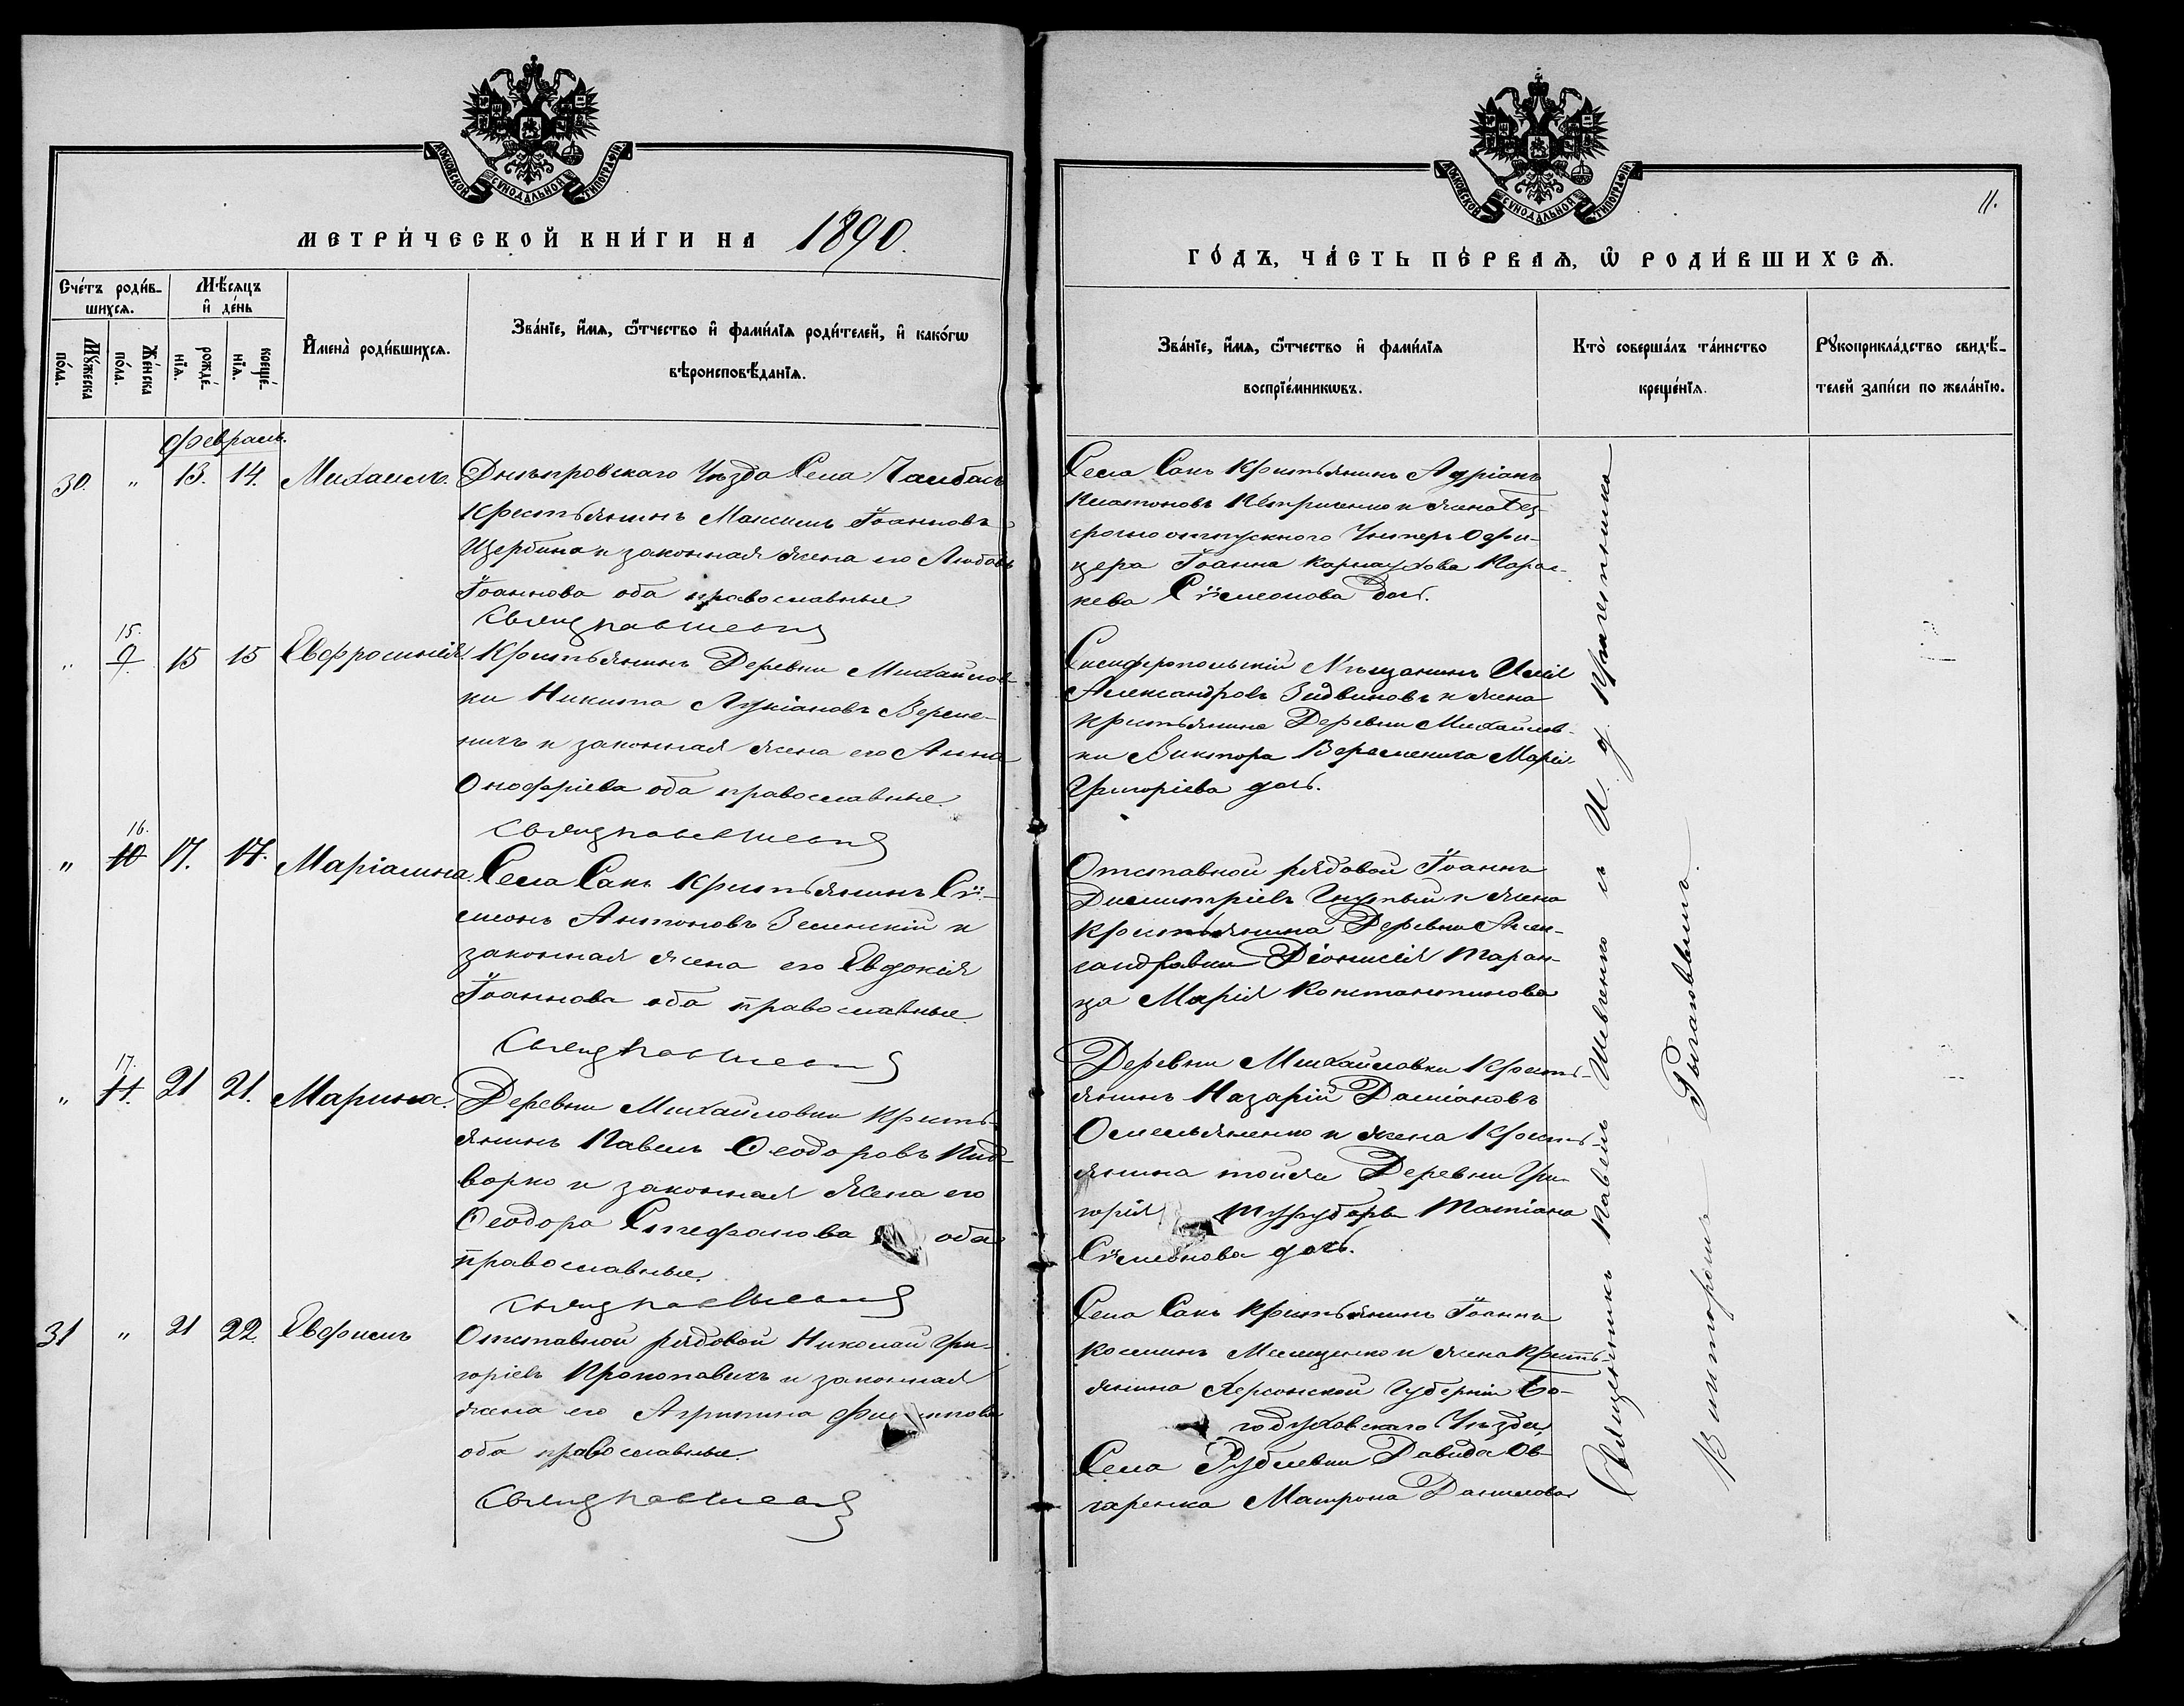 МОСКОВСКОЙ СѴНОДАЛЬНОЙ ТИПОГРАФІИ
МЕТРИ́ЧЕСКОЙ КНИ́ГИ НА 1890.
Сче́тъ роди́в-
шихсѧ.
Мѣ́сѧцъ
и҆ де́нь
Мꙋ́жеска
по́ла.
Же́нска
по́ла.
рожде́-
нїѧ.
креще́-
нїѧ.
И҆мена̀ роди́вшихсѧ.
Зва́нїе, и҆́мѧ, ѻ҆́тчество и҆ фами́лїѧ роди́телей, и҆ како́гѡ
вѣроисповѣ́данїѧ.
Февраль.
30. " 13. 14. Михаилъ.
Днѣпровскаго Уѣзда Села Чалбасъ
Крестьянинъ Максимъ Іоанновъ
Щербина и законная жена его Любовь
Іоаннова оба православные.
" 15. 9. 15 15 Евфросинія.
Крестьянинъ Деревни Михайлов-
ки Никита Лукіановъ Вереме-
ничъ и законная жена его Анна
Онофріева оба православные.
" 16. 10 17. 17. Маріамна.
Села Сакъ Крестьянинъ Сѵ-
меонъ Антоновъ Зеленскій и
законная жена его Евдокія
Іоаннова оба православные.
" 17. 11. 21 21. Марина.
Деревни Михайловки Кресть-
янинъ Павелъ Ѳеодоровъ Пид-
ворко и законная жена его
Ѳеодора Стефанова оба
православные.
31 " 21 22. Евфимъ
Отставной рядовой Николай Гри-
горіевъ Прокоповичъ и законная
жена его Агрипина Филиппова
оба православные.
МОСКОВСКОЙ СѴНОДАЛЬНОЙ ТИПОГРАФІИ
11.
ГО́ДЪ, ЧА́СТЬ ПЕ́РВАѦ, Ѽ РОДИ́ВШИХСѦ.
Зва́нїе, и҆́мѧ, ѻ҆́тчество и҆ фами́лїѧ
воспрїе́мникѡвъ.
Кто̀ соверша́лъ та́инство
креще́нїѧ.
Рꙋкоприкла́дство свидѣ́-
телей за́писи по жела́нїю.
Села Сакъ Крестьянинъ Адріанъ
Платоновъ Петриченко и жена Без-
срочно отпускного Унтеръ Офи-
цера Іоанна Карнаухова Парас-
кева Сѵмеонова дочь.
Симферопольскій Мѣщанинъ Илія
Александровъ Зидвиновъ и жена
крестьянина Деревни Михайлов-
ки Виктора Веременича Марія
Григоріева дочь.
Отставной рядовой Іоаннъ
Димитріевъ и жена
крестьянина Деревни Алек-
сандровки Діонисія Таран-
ца Марія Константинова
Деревни Михайловки Кресть-
янинъ Назарій Даміановъ
Омельяненко и жена Кресть-
янина тойже Деревни Гри-
горія Татіана
Сѵмеонова дочь.
Села Сакъ Крестьянинъ Іоаннъ
Косминъ Мелещенко и жена Кресть-
янина Херсонской Губерніи Бо-
годуховскаго Уѣзда
Села Рублевки Давида Ов-
чаренка Матрона Данилова
Священникъ Павелъ Шевченко съ И. д. Псаломщика
Викторомъ